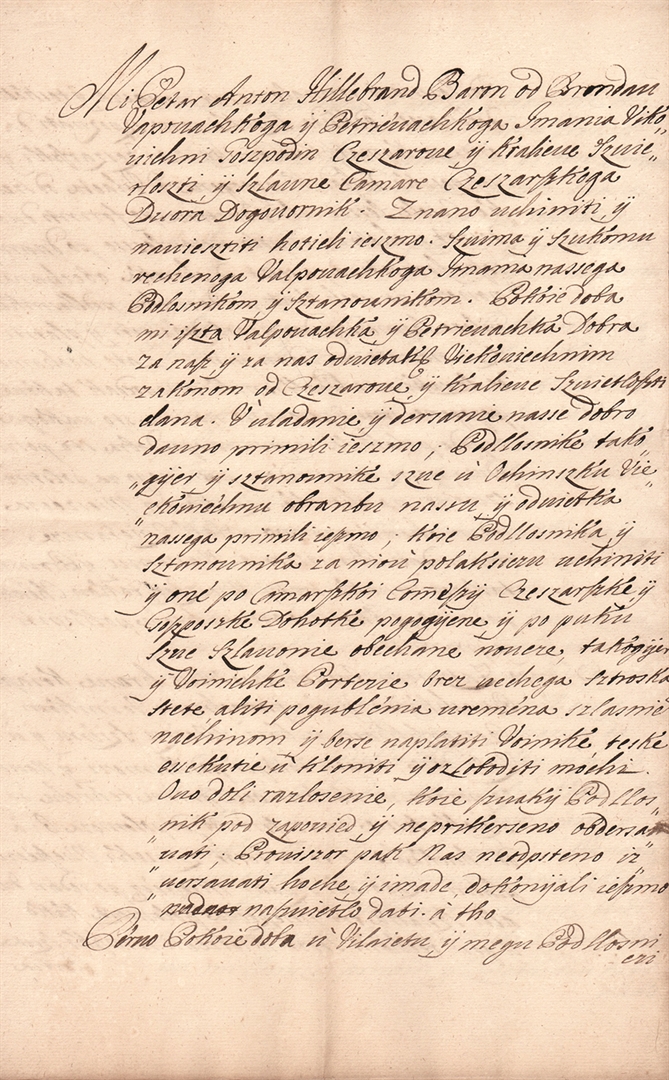 Mi Petar Anton Hillebrand Baron od Prandau
Valpovachkoga ÿ Petrievachkoga Imania Viko
vichni Goszpodin Czeszarove ÿ Kralieve Szvie
tloszti, ÿ Szlavne Camare Czeszarszkoga
Dvora Dogovornik. Znano uchiniti, ÿ
naviesztiti hotieli ieszmo. Szvima ÿ Szvkomu
rechenoga Valpovachkoga Imania nassega
Podlosnikom ÿ Sztanovnikom. Pokoie doba
mi iszta Valpovachka ÿ Petrievachka Dobra
za nasz, ÿ za nas odvietak Viekoviechnim
zakonom od Czeszarove ÿ Kralieve Szvietloszti
dana. Vuladanie, ÿ dersanie nasse dobro
davno primili ieszmo, Podlosnike tako
gÿer ÿ sztanovnike szve ù Ochinszku Vie
koviechnu obranbu nassu ÿ odvietka
nassega primili ieszmo; koie Podlosnika ÿ
Sztanovnika za niou polaksicu uchiniti
ÿ one po Camarszkoi Comeszÿ Czeszarszke ÿ
Goszposzke Dohotke pogogÿene, ÿ po putu
szve Szlavonie obechane novcze, takogÿer
ÿ Voinichke Portzie brez vechega sztroska
stete, aliti pogublénia vreména szlasnie
nachinom ÿ berse naplatiti Voinike, teske
exekutie ù kloniti ÿ ozloboditi mochi.
Ovo doli razlosenie, koie szvakÿ Podlos
nik pod zapovied ÿ neprikerseno obdersa
vati; Provizor pak Nas neodpsteno iz
versavati hoche, ÿ imade, dokonÿali ieszmo
naszvietlo dati. à tho
Pérvo Pokoie doba ù Vilaietu, ÿ megu Podlosni
czi